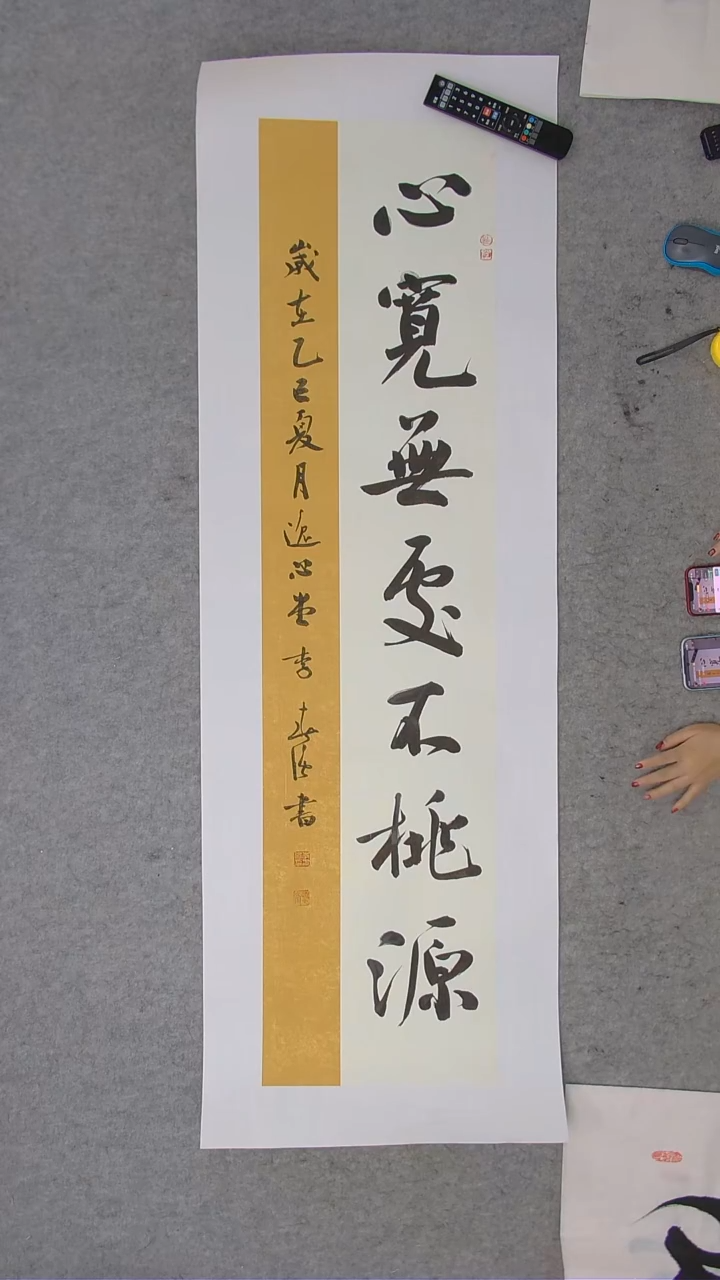 心寬無處不桃源
歲在乙巳夏月逸心堂李春浩書